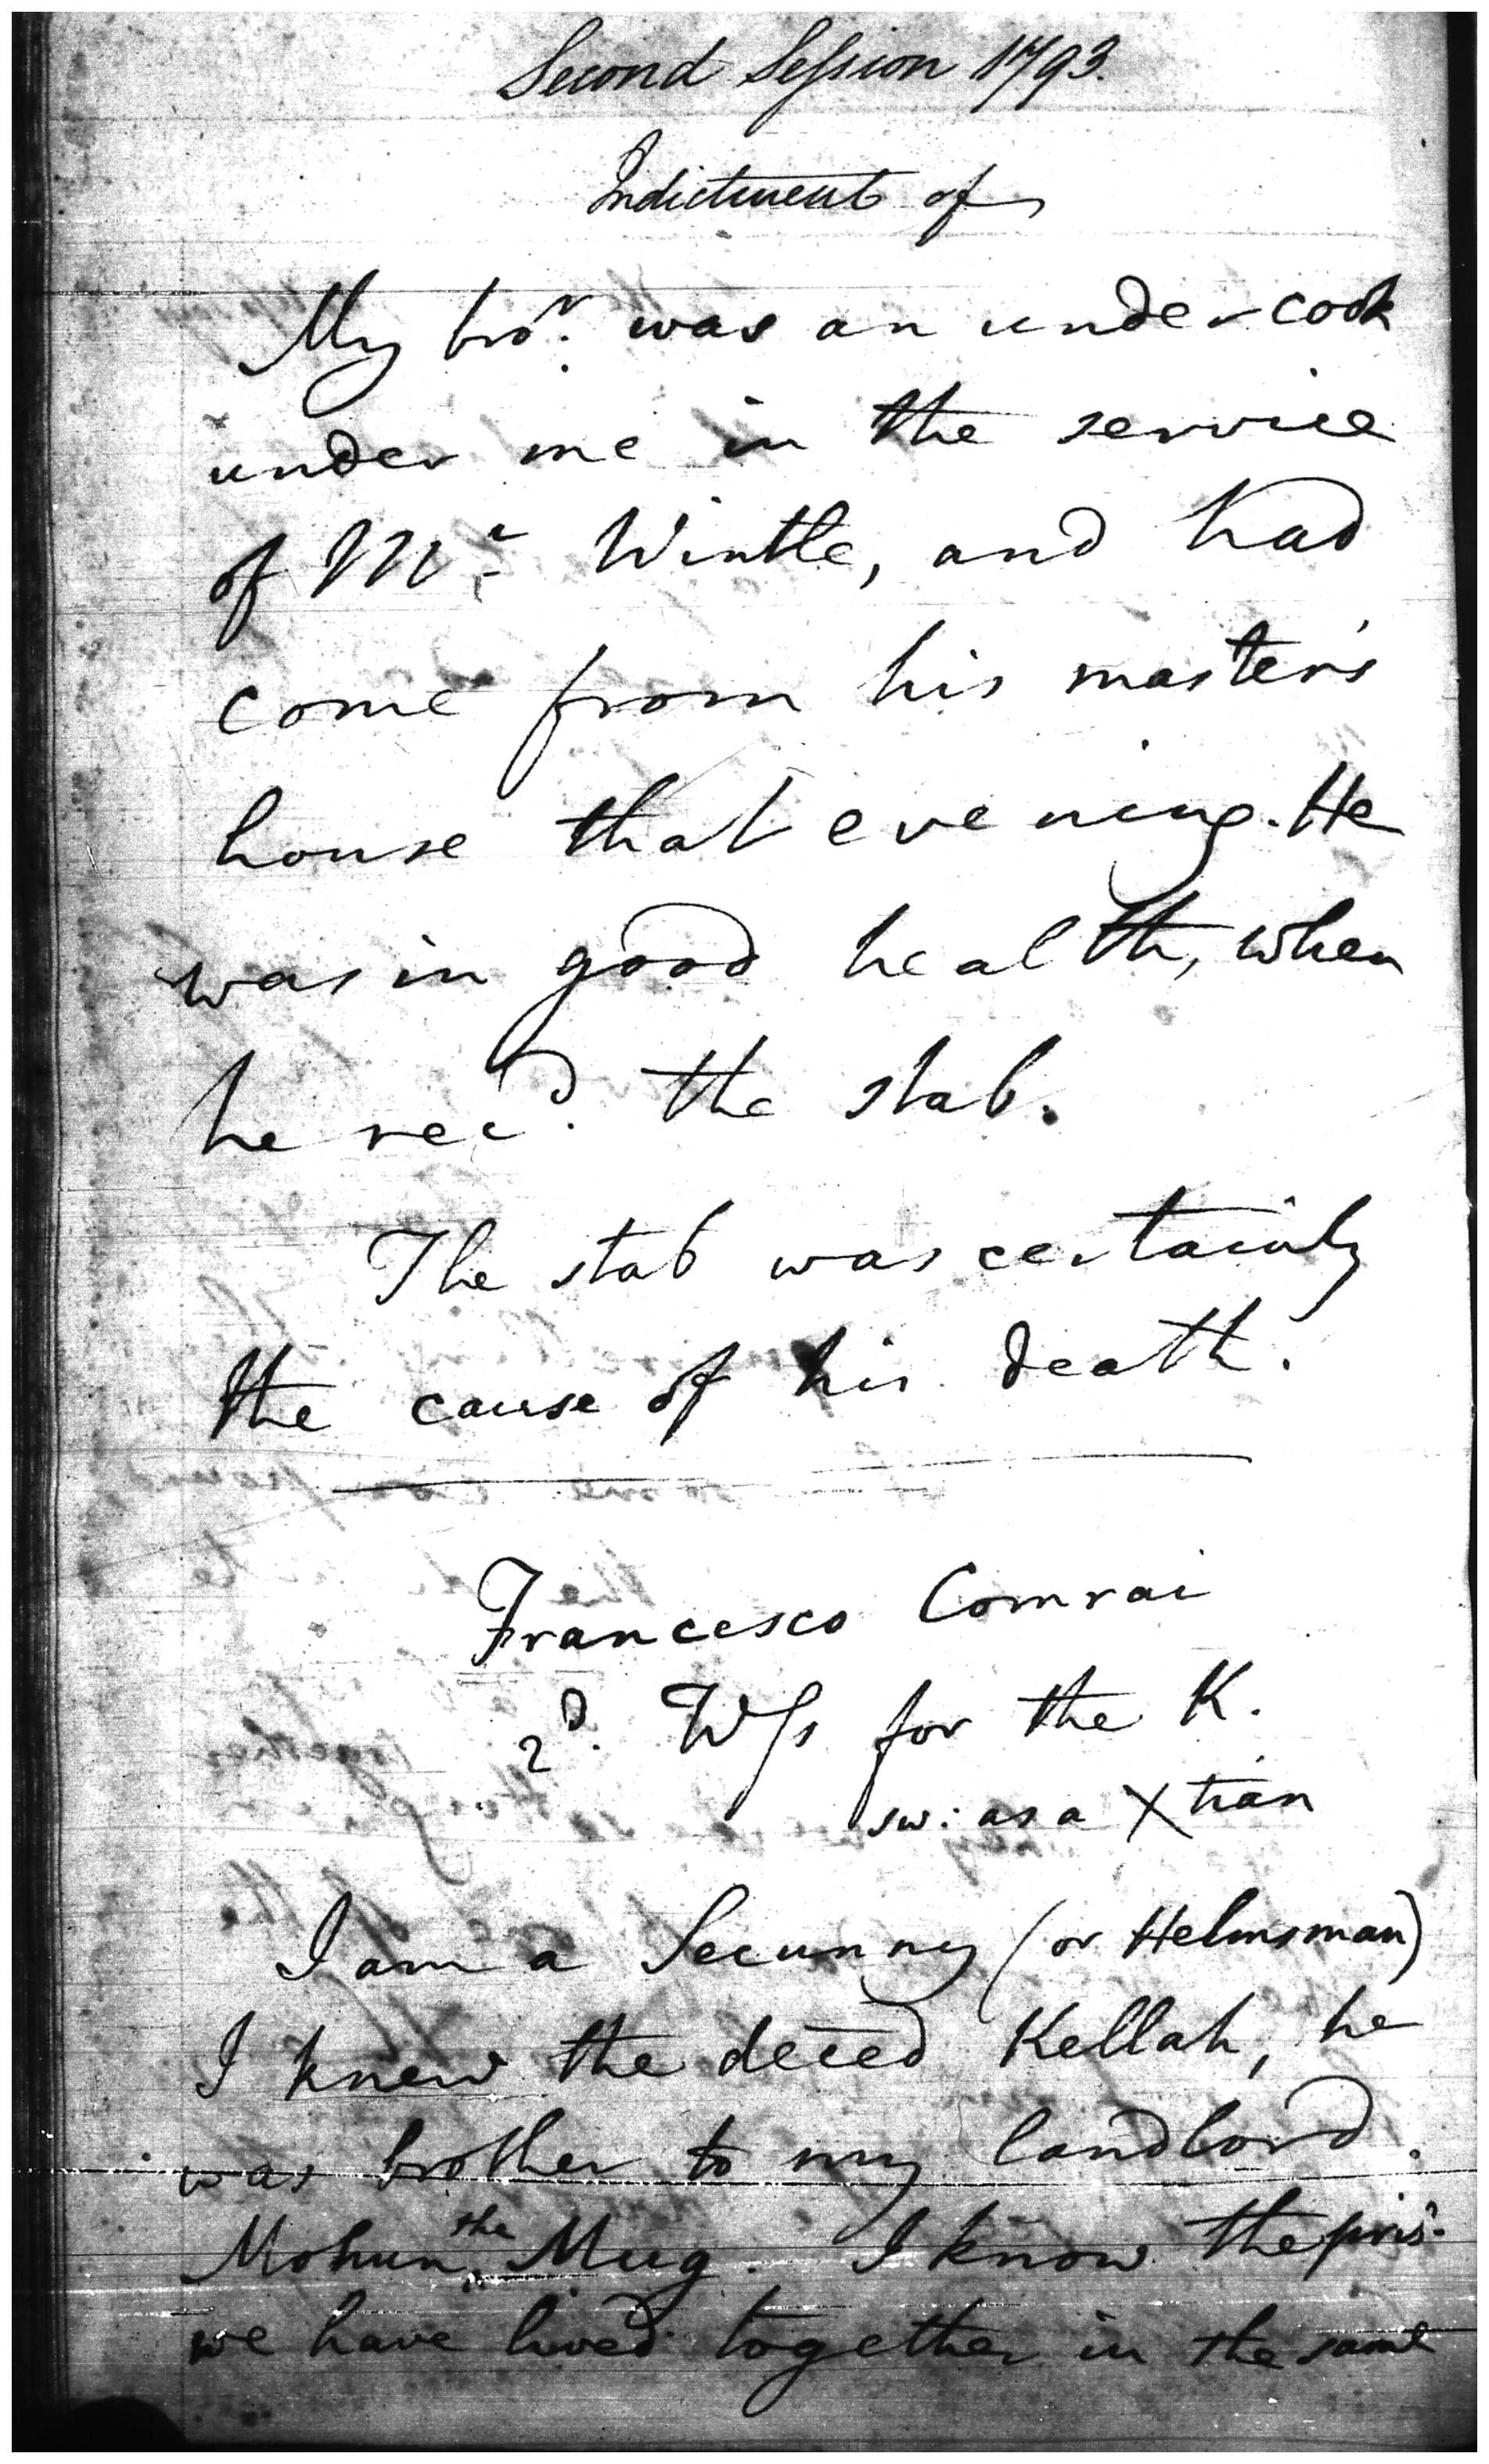 Second Session 1793.
Indictment of
My bror. was an under cook
under me in the service
of Mr. Wintle, and had
come from his master's
house that evening. He
was in good health, when
he recd. the stab.
The stab was certainly
the cause of his death.
Francesco Comrai
2d. Wss for the K.
sw: as a Xtian
I am a Secunny (or Helmsman)
I knew the deced Kellah, he
was brother to my landlord.
Mohun the Mug. I know the pris.
we have lived together in the same